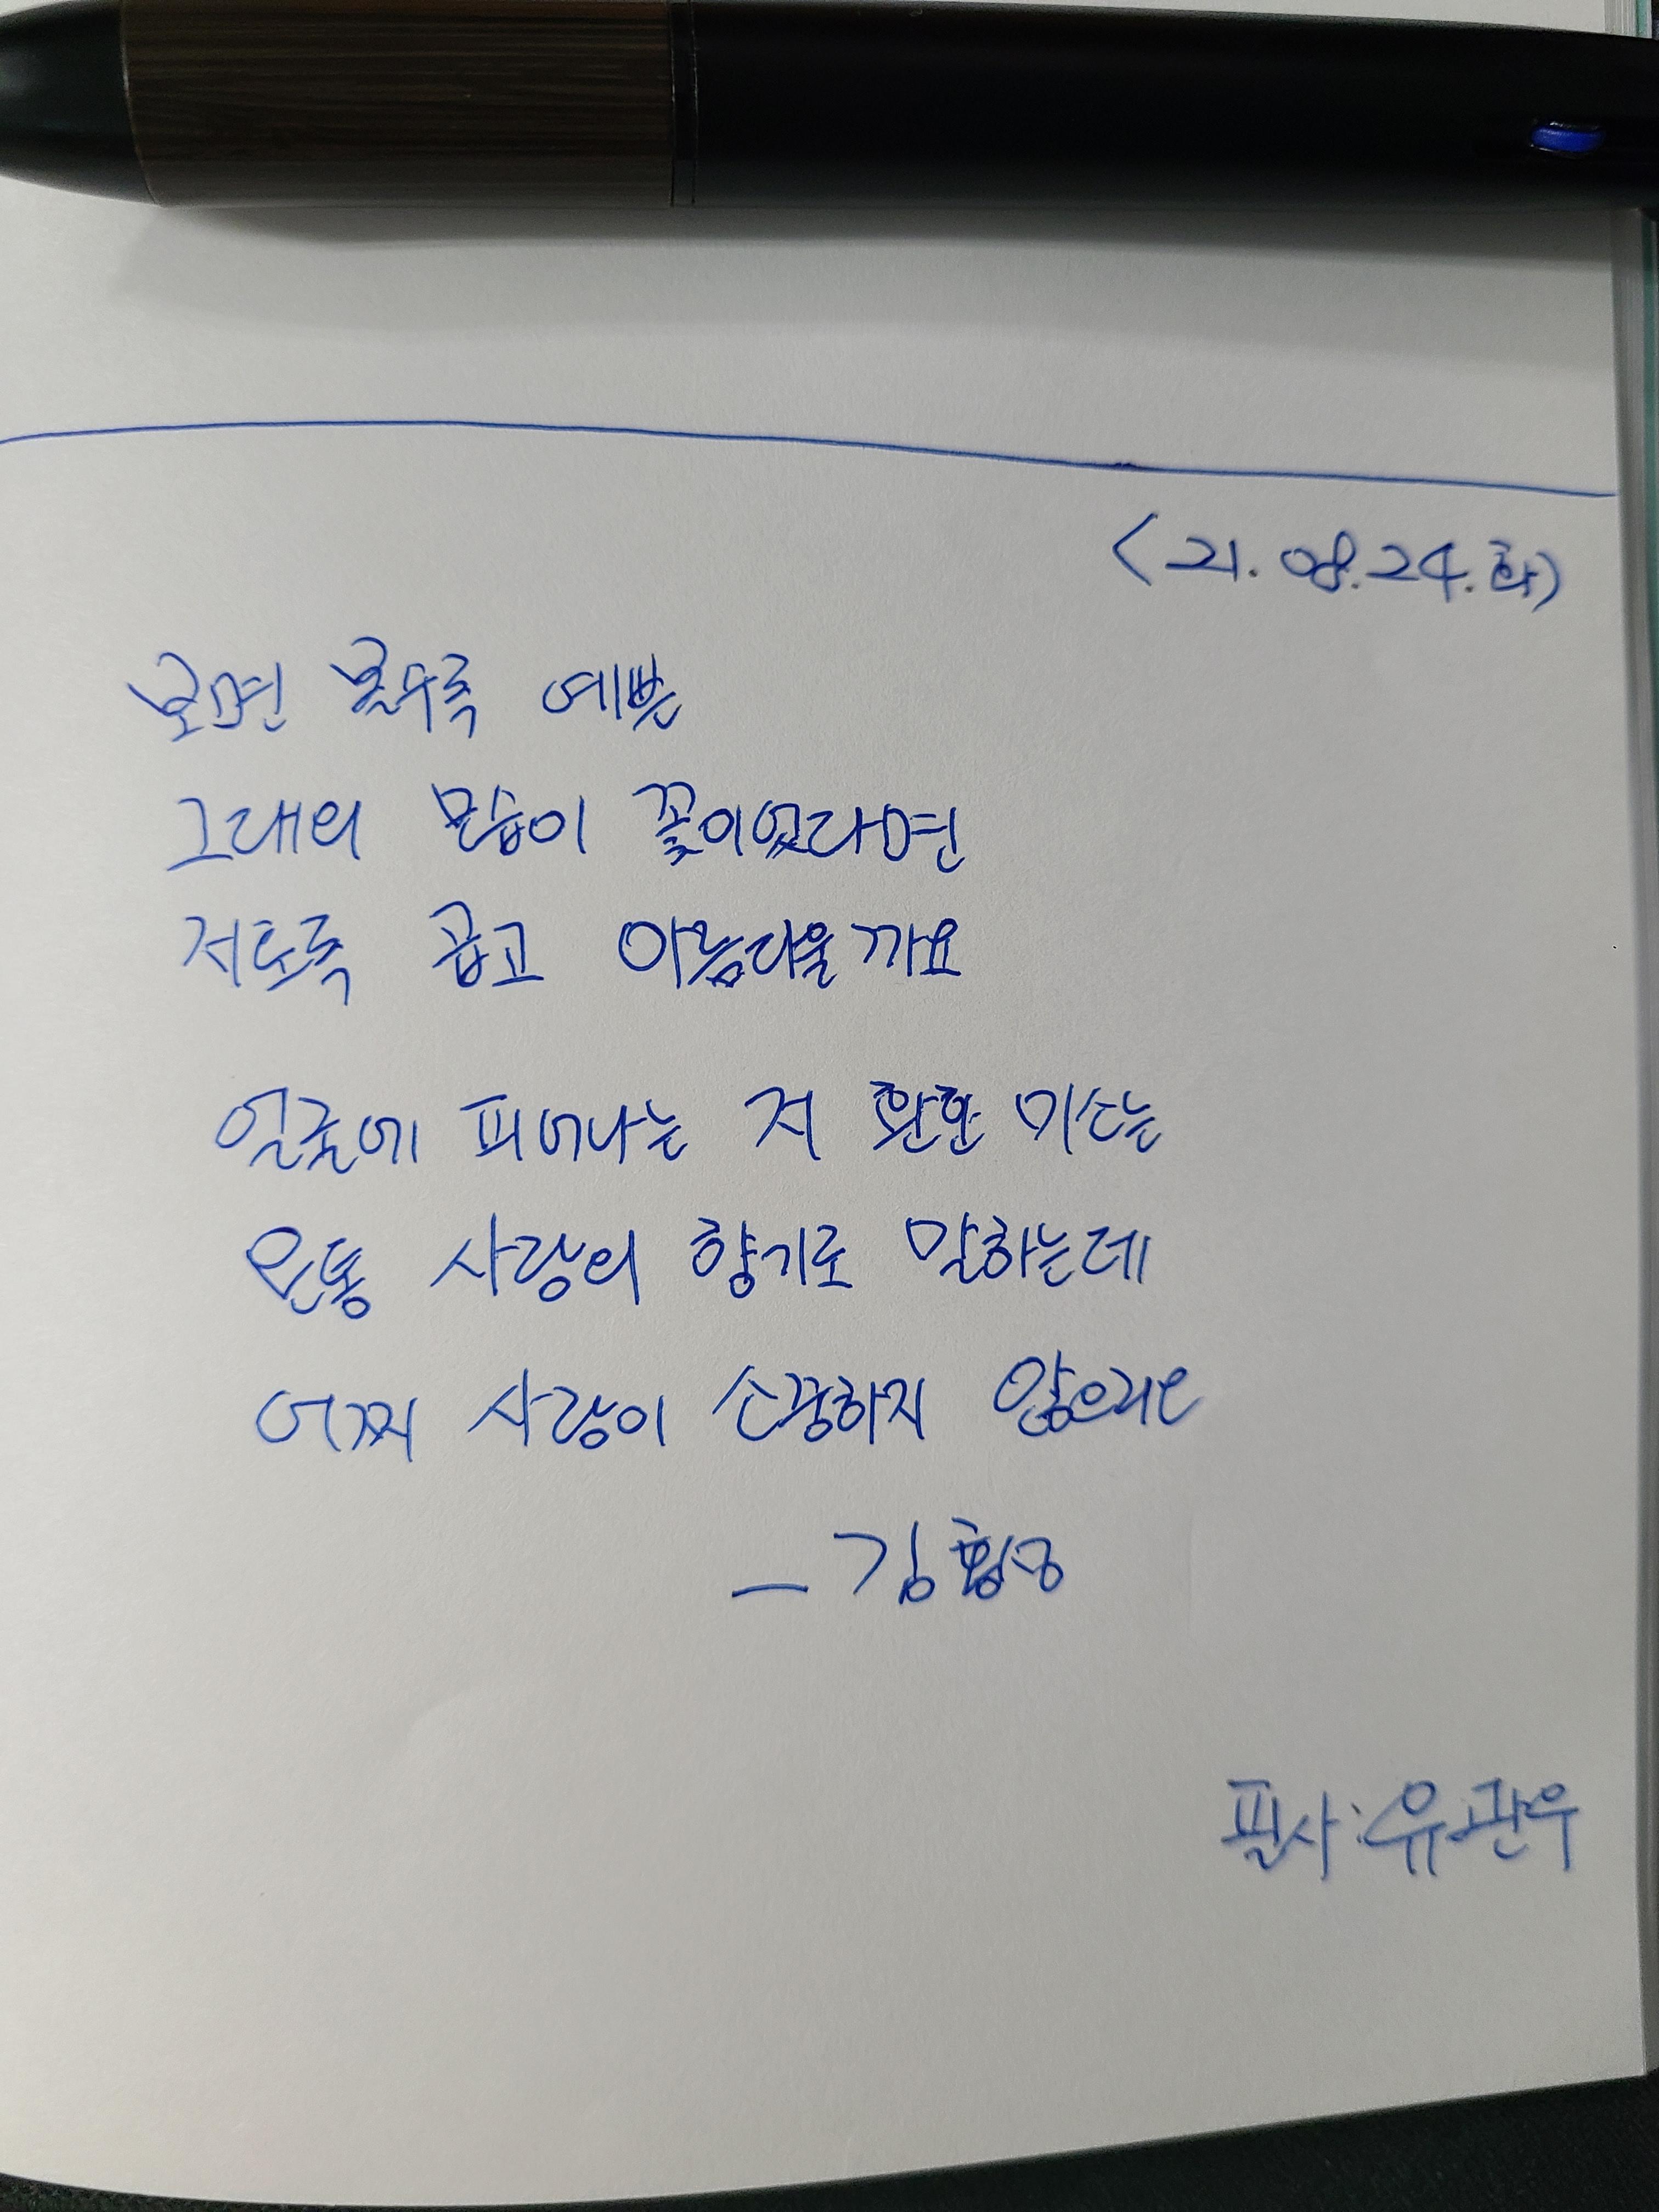 <21.08.24.화>
보면 볼수록 예쁜
그대의 모습이 꽃이었다면
저토록 곱고 아름다울까요
얼굴에 피어나는 저 환한 미소는
온통 사랑의 향기로 말하는데
어찌 사랑이 소중하지 않으리오
- 김
필사: 유관우